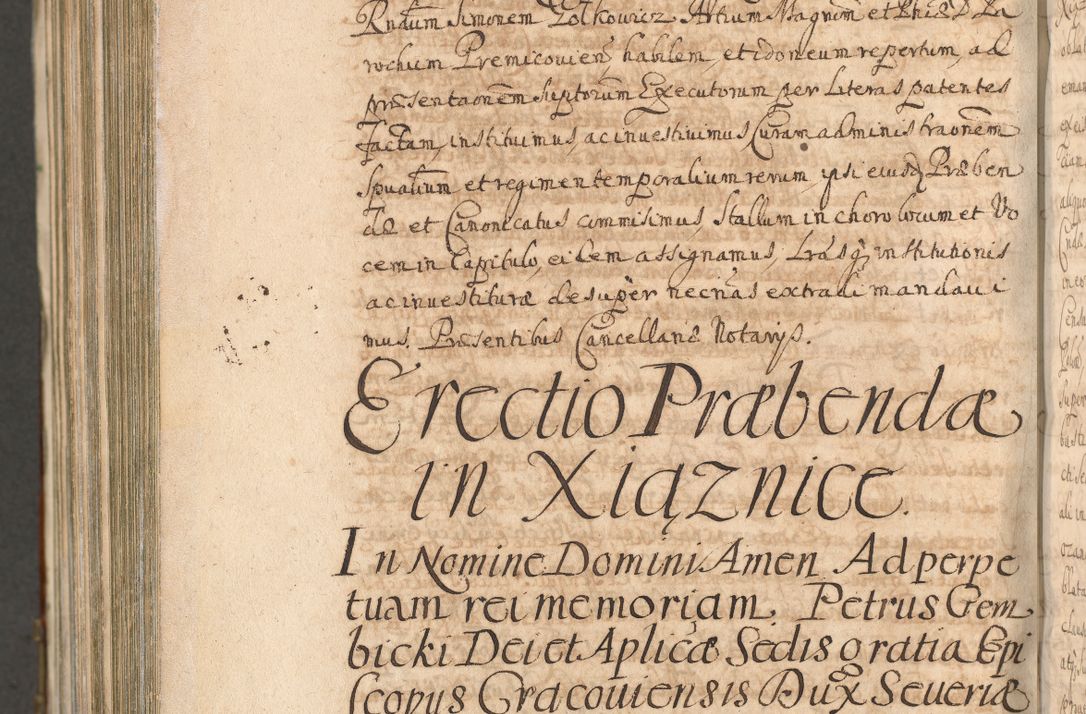 Rndum Simonem Zolkowicz Artium Magrum et Phiæ D. Pa
rochum Premicouien habilem, et idoneum repertum, ad
præsentaonem suptorum Executorum per Literas patentes
factam, instituimus, ac inuestiuimus, Curam administraonem
Spualium et regimen temporalium rerum, ipsi eiusq Præben
dæ et Canonicatus commisimus, Stallum in choro locum et Vo
cem in Capitulo, eidem assignamus, Lrasq institutionis
ac inuestituræ desuper necrias extradi mandaui
mus. Præsentibus Cancellariæ Notarijs.
Erectio Præbendæ
in Xiąznice.
In Nomine Domini Amen Ad perpe
tuam rei memoriam. Petrus Gem
bicki Dei et Aplicæ Sedis gratia Epi
scopus Cracouiensis Dux Seueriæ